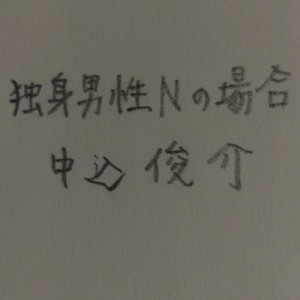 独身男性Nの場合
中込俊介